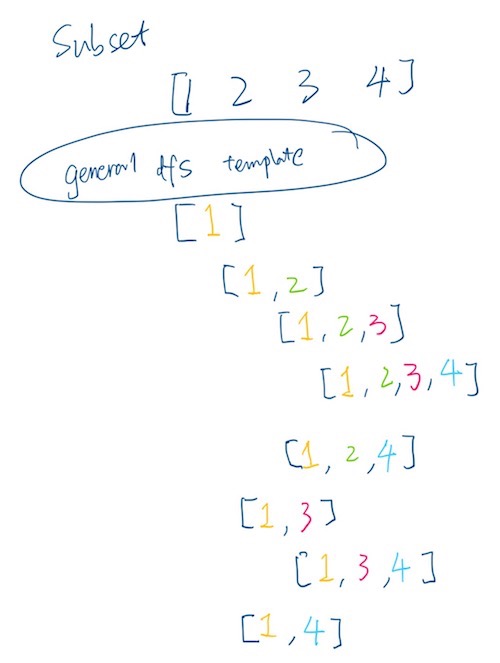 Subset
[1 2 3 4]
general dfs template
[1]
[1,2]
[1,2,3]
[1,2,3,4]
[1,2,4]
[1,3]
[1,3,4]
[1,4]